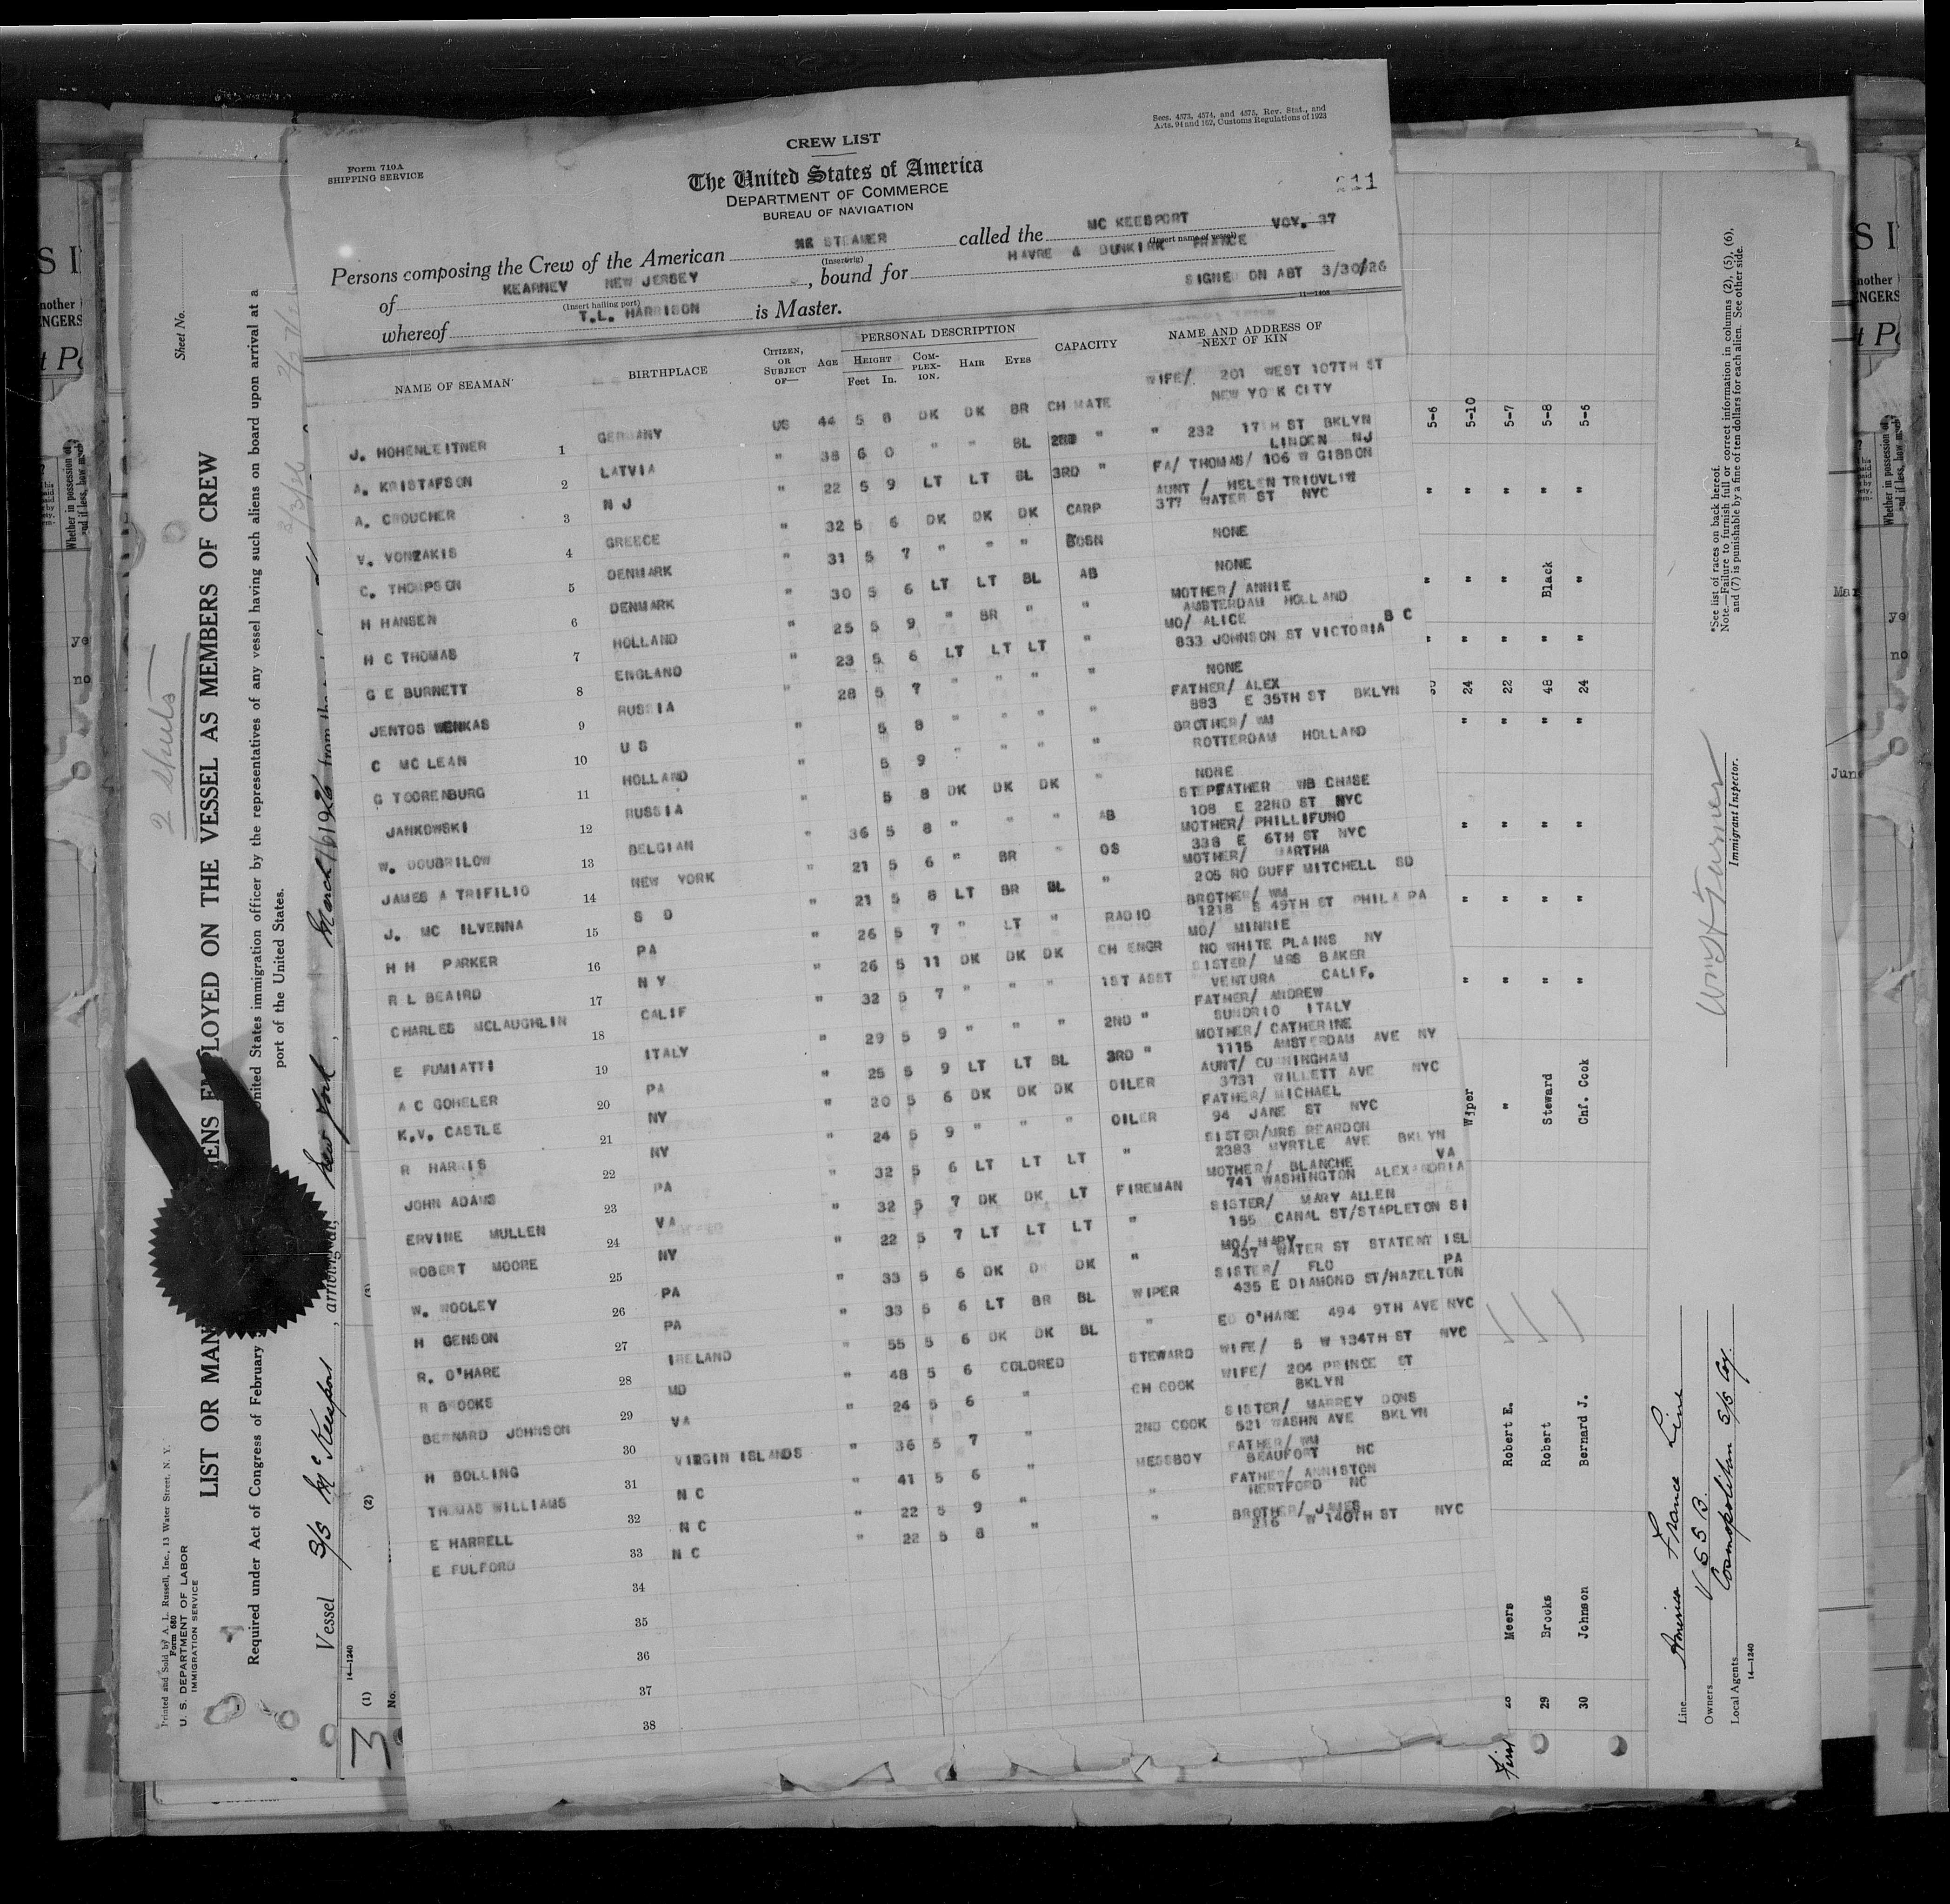 Form 710A
SHIPPING SERVICE
CREW LIST
Secs. 4573, 4574, and 4575, Rev. Stat., and
Arts. 94 and 162, Customs Regulations of 1923
The United States of America
DEPARTMENT OF COMMERCE
BUREAU OF NAVIGATION
211
Persons composing the Crew of the American STEAMER called the MC KEESPORT VOY. 37
(Insert rig) (Insert name of vessel)
of KEARNEY NEW JERSEY, bound for HAVRE & DUNKIRK FRANCE
(Insert hailing port)
whereof T.L. HARRISON is Master. SIGNED ON ABT 3/30/26
11—1408
NAME OF SEAMAN BIRTHPLACE CITIZEN, OR SUBJECT OF— AGE PERSONAL DESCRIPTION CAPACITY NAME AND ADDRESS OF NEXT OF KIN
HEIGHT COM-PLEX-ION. HAIR EYES
Feet In.
J. HOHENLEITNER 1 GERMANY US 44 5 8 DK DK BR CH MATE WIFE/ 201 WEST 107TH ST NEW YO K CITY
A. KRISTAFSON 2 LATVIA " 38 6 0 " " BL 2ND " " 232 17TH ST BKLYN
A. CROUCHER 3 N J " 22 5 9 LT LT BL 3RD " FA/ THOMAS/ 106 W GIBBON LINDEN NJ
V. VONZAKIS 4 GREECE " 32 5 6 DK DK DK CARP AUNT / HELEN TRIOVLIW 377 WATER ST NYC
C. THOMPSON 5 DENMARK " 31 5 7 " " " BOSN NONE
H HANSEN 6 DENMARK " 30 5 6 LT LT BL AB NONE
H C THOMAS 7 HOLLAND " 25 5 9 " BR " " MOTHER/ ANNIE AMSTERDAM HOLLAND
G E BURNETT 8 ENGLAND " 23 5 6 LT LT LT " MO/ ALICE 833 JOHNSON ST VICTORIA B C
JENTOS WENKAS 9 RUSSIA " 28 5 7 " " " " NONE
C MC LEAN 10 U S " 5 8 " " " " FATHER/ ALEX 883 E 35TH ST BKLYN
G TOORENBURG 11 HOLLAND " 5 9 " " " " BROTHER/ WM ROTTERDAM HOLLAND
JANKOWSKI 12 RUSSIA " 5 8 DK DK DK " NONE
W. DOUBRILOW 13 BELGIAN " 36 5 8 " " " AB STEPFATHER WB CHASE 108 E 22ND ST NYC
JAMES A TRIFILIO 14 NEW YORK " 21 5 6 " BR " OS MOTHER/ PHILLIFUNO 338 E 6TH ST NYC
J. MC ILVENNA 15 S D " 21 5 8 LT BR BL " MOTHER/ MARTHA 205 NO DUFF MITCHELL SD
H H PARKER 16 PA " 26 5 7 " LT " RADIO BROTHER/ WM 1218 S 49TH ST PHILA PA
R L BEAIRD 17 N Y " 26 5 11 DK DK DK CH ENGR MO/ MINNIE NO WHITE PLAINS NY
CHARLES MCLAUGHLIN 18 CALIF " 32 5 7 " " " 1ST ASST SISTER/ MRS BAKER VENTURA CALIF.
E FUMIATTI 19 ITALY " 29 5 9 " " " 2ND " FATHER/ ANDREW SUNDRIO ITALY
A C GOHELER 20 PA " 25 5 9 LT LT BL 3RD " MOTHER/ CATHERINE 1115 AMSTERDAM AVE NY
K.V. CASTLE 21 NY " 20 5 6 DK DK DK OILER AUNT/ CUNNINGHAM 3731 WILLETT AVE NYC
R HARRIS 22 NY " 24 5 9 " " " OILER FATHER/ MICHAEL 94 JANE ST NYC
JOHN ADAMS 23 PA " 32 5 6 LT LT LT " SISTER/MRS REARDON 2383 MYRTLE AVE BKLYN
ERVINE MULLEN 24 VA " 32 5 7 DK DK LT FIREMAN MOTHER/ BLANCHE 741 WASHINGTON ALEXANDRIA VA
ROBERT MOORE 25 NY " 22 5 7 LT LT LT " SISTER/ MARY ALLEN 155 CANAL ST/STAPLETON SI
W. WOOLEY 26 PA " 33 5 6 DK DK DK " MO/ MARY 437 WATER ST STATENT ISL
H GENSON 27 PA " 33 5 6 LT BR BL WIPER SISTER/ FLO 435 E DIAMOND ST/HAZELTON PA
R. O'HARE 28 IRELAND " 55 5 6 DK DK BL " ED O'HARE 494 9TH AVE NYC
R BROOKS 29 MD " 48 5 6 COLORED STEWARD WIFE/ 5 W 134TH ST NYC
BERNARD JOHNSON 30 VA " 24 5 6 " CH COOK WIFE/ 204 PRINCE ST BKLYN
H BOLLING 31 VIRGIN ISLANDS " 36 5 7 " 2ND COOK SISTER/ MARREY DONS 521 WASHN AVE BKLYN
THOMAS WILLIAMS 32 N C " 41 5 6 " MESSBOY FATHER/ WM BEAUFORT NC
E HARRELL 33 N C " 22 5 9 " " FATHER/ ANNISTON HERTFORD NC
E FULFORD N C " 22 5 8 " " BROTHER/ JAMES 216 W 140TH ST NYC
34
35
36
37
38
Sheet No.
2 sheets
LIST OR MAN ENS EMPLOYED ON THE VESSEL AS MEMBERS OF CREW
Required under Act of Congress of February United States immigration officer by the representatives of any vessel having such aliens on board upon arrival at a
port of the United States.
Vessel S/S McKeesport, arriving at New York, March 16 1926 from the
Printed and Sold by A. L. Russell, Inc., 13 Water Street, N. Y.
Form 680
U. S. DEPARTMENT OF LABOR
IMMIGRATION SERVICE
14—1240
(1) (2) (3)
No.
3
5-6 5-10 5-7 5-8 5-5
Black
24 22 48 24
Wiper " Steward Chf. Cook
28 Meers Robert E.
29 Brooks Robert
30 Johnson Bernard J.
*See list of races on back hereof.
Note.—Failure to furnish full or correct information in columns (2), (5), (6),
and (7) is punishable by a fine of ten dollars for each alien. See other side.
Wm H Turner
Immigrant Inspector.
Line America France Line
Owners U S S B.
Local Agents Cosmopolitan S/S Coy.
14—1240